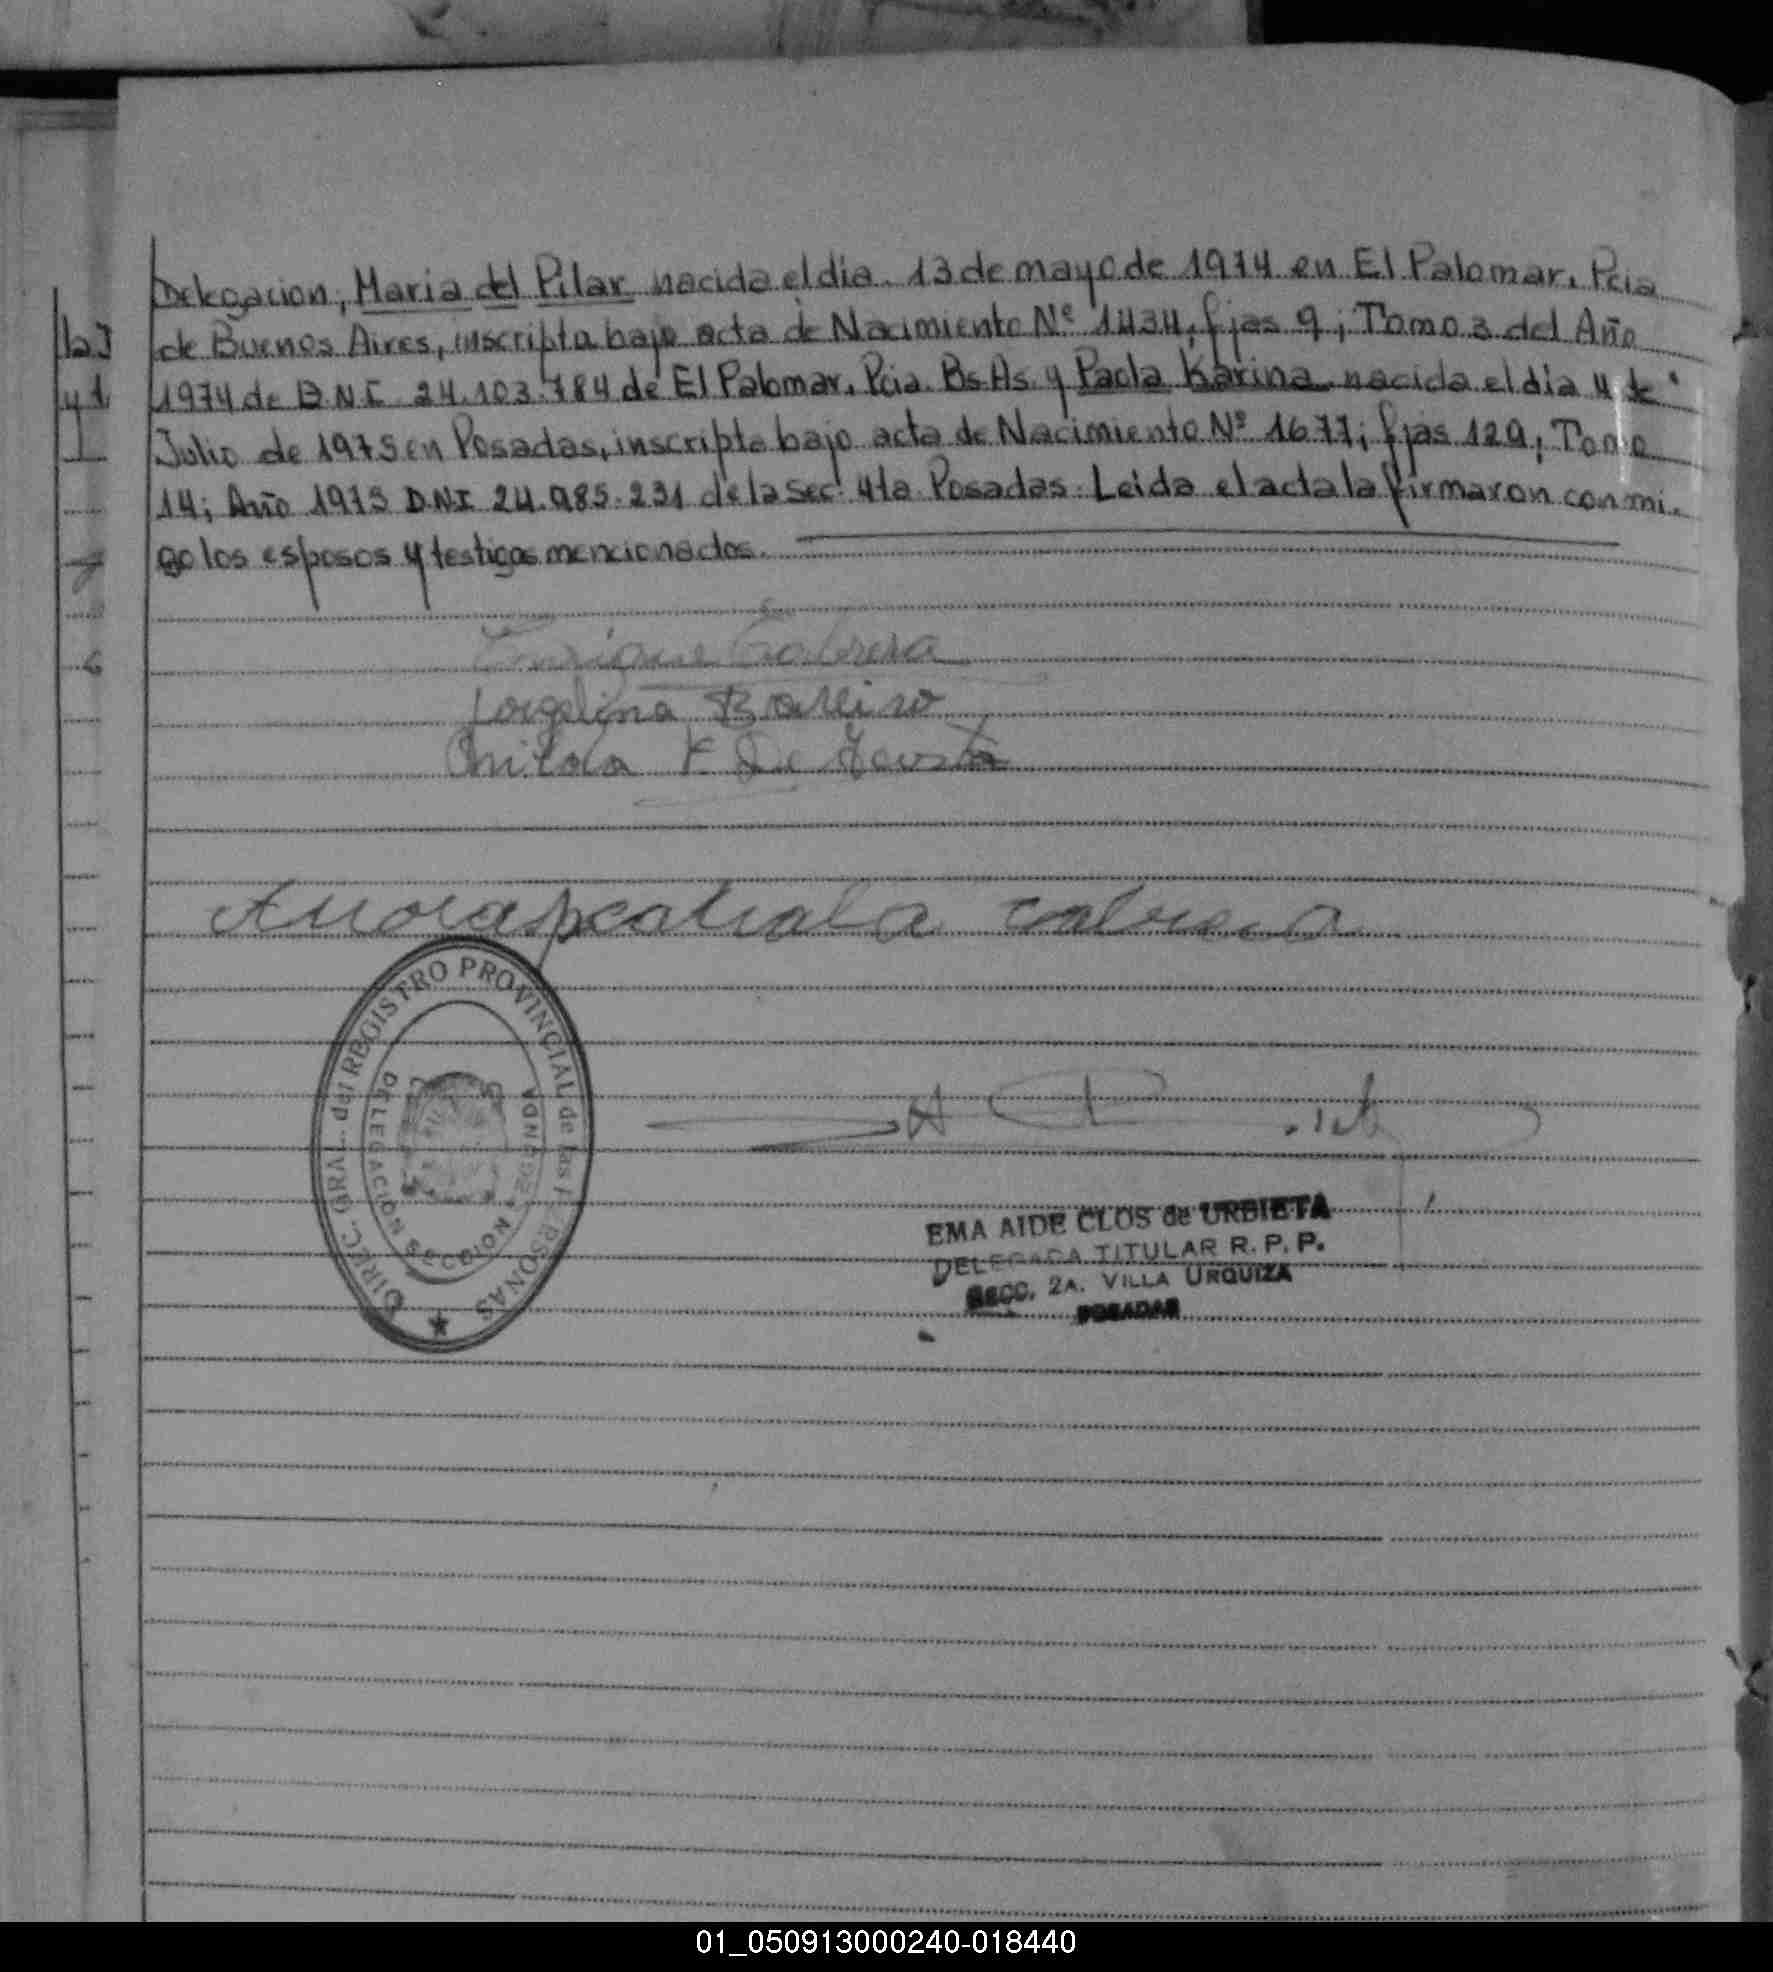 Delegacion, Maria del Pilar nacida el dia 13 de mayo de 1974 en El Palomar, Pcia
de Buenos Aires, inscripta bajo acta de Nacimiento Nº 1434, fjas 9; Tomo 3 del Año
1974 de D.N.I. 24.103.784 de El Palomar, Pcia. Bs.As. y Paola Karina nacida el dia 4 de
Julio de 1975 en Posadas, inscripta bajo acta de Nacimiento Nº 1677; fjas 129; Tomo
14; Año 1975 D.N.I 24.985.231 de la Sec. 4ta Posadas. Leida el acta la firmaron conmi-
go los esposos y testigos mencionados.
Enrique Cabrera
Jorgelina
cabrera
DIREC. GRAL. del REGISTRO PROVINCIAL de las PERSONAS
DELEGACION SECCION SEGUNDA
EMA AIDE CLOS de URBIETA
DELEGADA TITULAR R. P. P.
SECC. 2A. VILLA URQUIZA
POSADAS
01_050913000240-018440